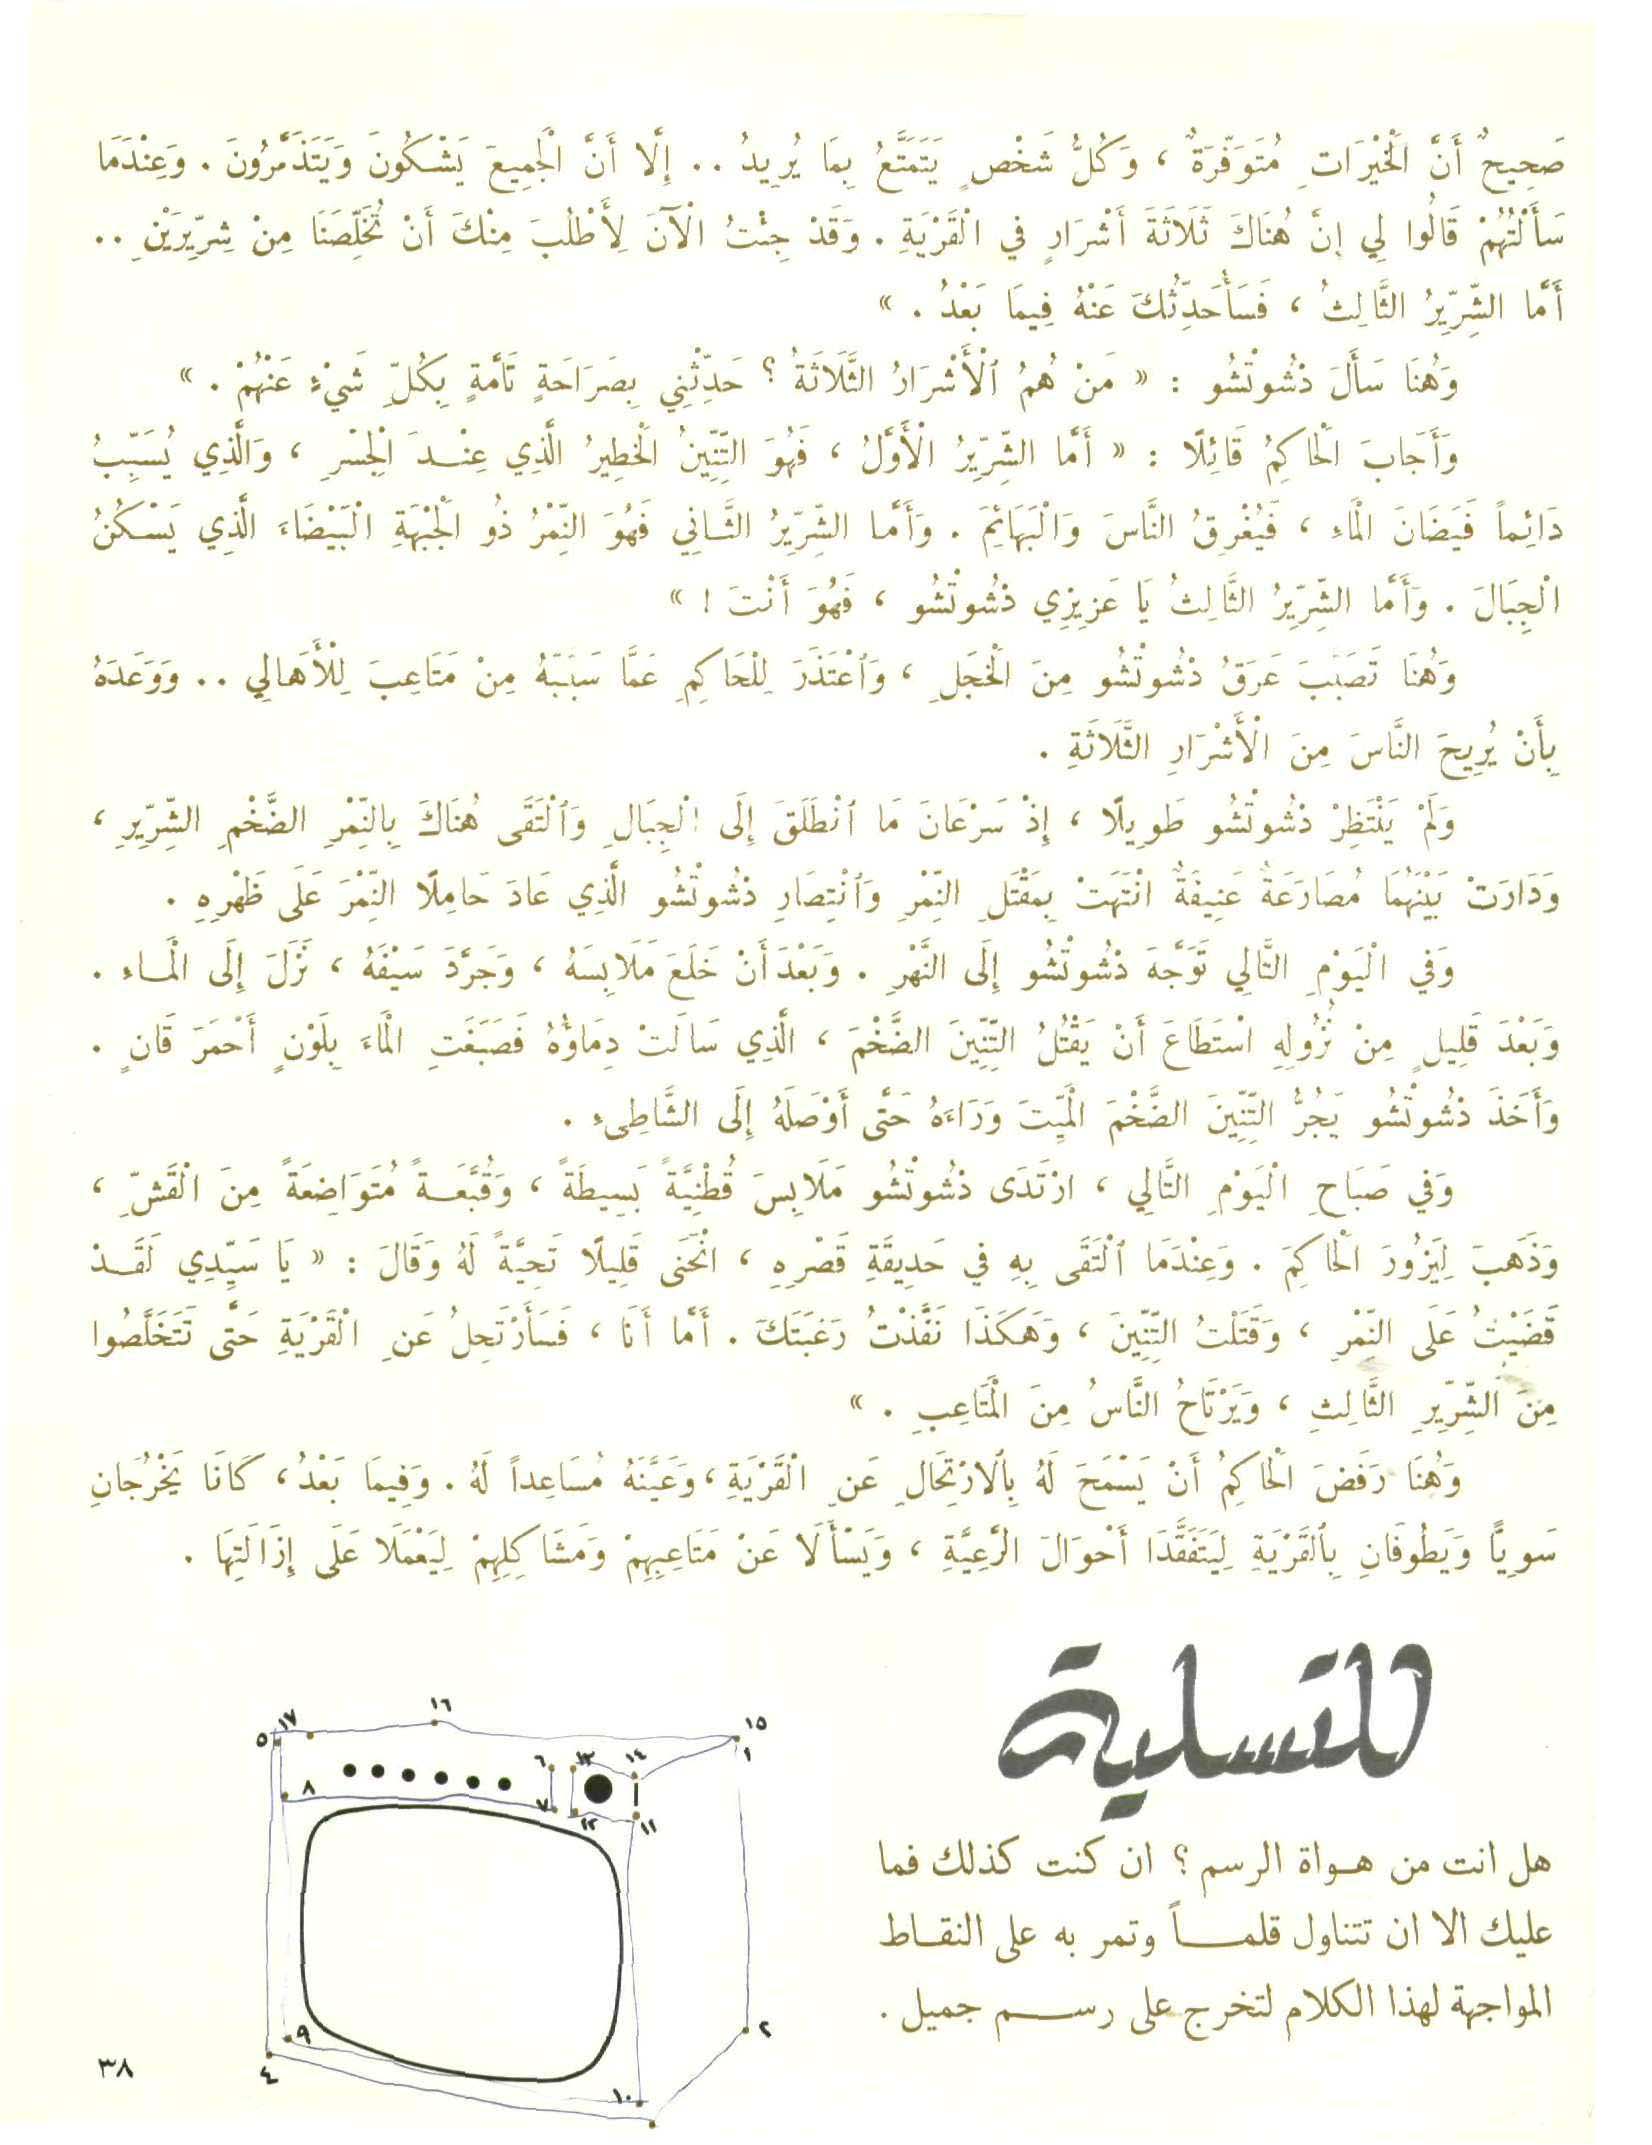 صَحِيحٌ أَنَّ الْخَيْرَاتِ مُتَوَفِّرَةٌ ، وَكُلُّ شَخْصٍ يَتَمَتَّعُ بِمَا يُرِيدُ .. إِلَّا أَنَّ الْجَمِيعَ يَشْكُونَ وَيَتَذَمَّرُونَ . وَعِنْدَمَا
سَأَلْتُهُمْ قَالُوا لِي إِنَّ هُنَاكَ ثَلَاثَةَ أَشْرَارٍ فِي الْقَرْيَةِ . وَقَدْ جِئْتُ الْآنَ لِأَطْلُبَ مِنْكَ أَنْ تُخَلِّصَنَا مِنْ شِرِّيرَيْنِ ..
أَمَّا الشِّرِّيرُ الثَّالِثُ ، فَسَأُحَدِّثُكَ عَنْهُ فِيمَا بَعْدُ . »
وَهُنَا سَأَلَ دْشُوتْشُو : « مَنْ هُمُ ٱلْأَشْرَارُ الثَّلَاثَةُ ؟ حَدِّثْنِي بِصَرَاحَةٍ تَامَّةٍ بِكُلِّ شَيْءٍ عَنْهُمْ . »
وَأَجَابَ الْحَاكِمُ قَائِلًا : « أَمَّا الشِّرِّيرُ الْأَوَّلُ ، فَهُوَ التِّنِّينُ الْخَطِيرُ الَّذِي عِنْدَ الْجِسْرِ ، وَالَّذِي يُسَبِّبُ
دَائِماً فَيَضَانَ الْمَاءِ ، فَيُغْرِقُ النَّاسَ وَالْبَهَائِمَ . وَأَمَّا الشِّرِّيرُ الثَّانِي فَهُوَ النِّمْرُ ذُو الْجَبْهَةِ الْبَيْضَاءَ الَّذِي يَسْكُنُ
الْجِبَالَ . وَأَمَّا الشِّرِّيرُ الثَّالِثُ يَا عَزِيزِي دْشُوتْشُو ، فَهُوَ أَنْتَ ! »
وَهُنَا تَصَبَّبَ عَرَقُ دْشُوتْشُو مِنَ الْخَجَلِ ، وَٱعْتَذَرَ لِلْحَاكِمِ عَمَّا سَبَّبَهُ مِنْ مَتَاعِبَ لِلْأَهَالِي .. وَوَعَدَهُ
بِأَنْ يُرِيحَ النَّاسَ مِنَ الْأَشْرَارِ الثَّلَاثَةِ .
وَلَمْ يَنْتَظِرْ دْشُوتْشُو طَوِيلًا ، إِذْ سَرْعَانَ مَا ٱنْطَلَقَ إِلَى الْجِبَالِ وَٱلْتَقَى هُنَاكَ بِالنِّمْرِ الضَّخْمِ الشِّرِّيرِ ،
وَدَارَتْ بَيْنَهُمَا مُصَارَعَةٌ عَنِيفَةٌ انْتَهَتْ بِمَقْتَلِ النِّمْرِ وَٱنْتِصَارِ دْشُوتْشُو الَّذِي عَادَ حَامِلًا النِّمْرَ عَلَى ظَهْرِهِ .
وَفِي الْيَوْمِ التَّالِي تَوَجَّهَ دْشُوتْشُو إِلَى النَّهْرِ . وَبَعْدَ أَنْ خَلَعَ مَلَابِسَهُ ، وَجَرَّدَ سَيْفَهُ ، نَزَلَ إِلَى الْمَاءِ .
وَبَعْدَ قَلِيلٍ مِنْ نُزُولِهِ اسْتَطَاعَ أَنْ يَقْتُلَ التِّنِّينَ الضَّخْمَ ، الَّذِي سَالَتْ دِمَاؤُهُ فَصَبَغَتِ الْمَاءَ بِلَوْنٍ أَحْمَرَ قَانٍ .
وَأَخَذَ دْشُوتْشُو يَجُرُّ التِّنِّينَ الضَّخْمَ الْمَيِّتَ وَرَاءَهُ حَتَّى أَوْصَلَهُ إِلَى الشَّاطِىءِ .
وَفِي صَبَاحِ الْيَوْمِ التَّالِي ، ارْتَدَى دْشُوتْشُو مَلَابِسَ قُطْنِيَّةً بَسِيطَةً ، وَقُبَّعَةً مُتَوَاضِعَةً مِنَ الْقَشِّ ،
وَذَهَبَ لِيَزُورَ الْحَاكِمَ . وَعِنْدَمَا ٱلْتَقَى بِهِ فِي حَدِيقَةِ قَصْرِهِ ، انْحَنَى قَلِيلًا تَحِيَّةً لَهُ وَقَالَ : « يَا سَيِّدِي لَقَدْ
قَضَيْتُ عَلَى النِّمْرِ ، وَقَتَلْتُ التِّنِّينَ ، وَهَكَذَا نَفَّذْتُ رَغْبَتَكَ . أَمَّا أَنَا ، فَسَأَرْتَحِلُ عَنِ الْقَرْيَةِ حَتَّى تَتَخَلَّصُوا
مِنَ الشِّرِّيرِ الثَّالِثِ ، وَيَرْتَاحُ النَّاسُ مِنَ الْمَتَاعِبِ . »
وَهُنَا رَفَضَ الْحَاكِمُ أَنْ يَسْمَحَ لَهُ بِٱلارْتِحَالِ عَنِ الْقَرْيَةِ ، وَعَيَّنَهُ مُسَاعِداً لَهُ . وَفِيمَا بَعْدُ ، كَانَا يَخْرُجَانِ
سَوِيًّا وَيَطُوفَانِ بِٱلْقَرْيَةِ لِيَتَفَقَّدَا أَحْوَالَ الرَّعِيَّةِ ، وَيَسْأَلَا عَنْ مَتَاعِبِهِمْ وَمَشَاكِلِهِمْ لِيَعْمَلَا عَلَى إِزَالَتِهَا .
للتسلية
هل انت من هواة الرسم ؟ ان كنت كذلك فما
عليك الا ان تتناول قلمـــاً وتمر به على النقـاط
المواجهة لهذا الكلام لتخرج على رســـم جميل .
١٦
١٥
١٧
٥
١
١٤
١٣
٦
٨
٧
١٢
١١
٢
٩
٤
١٠
٣٨